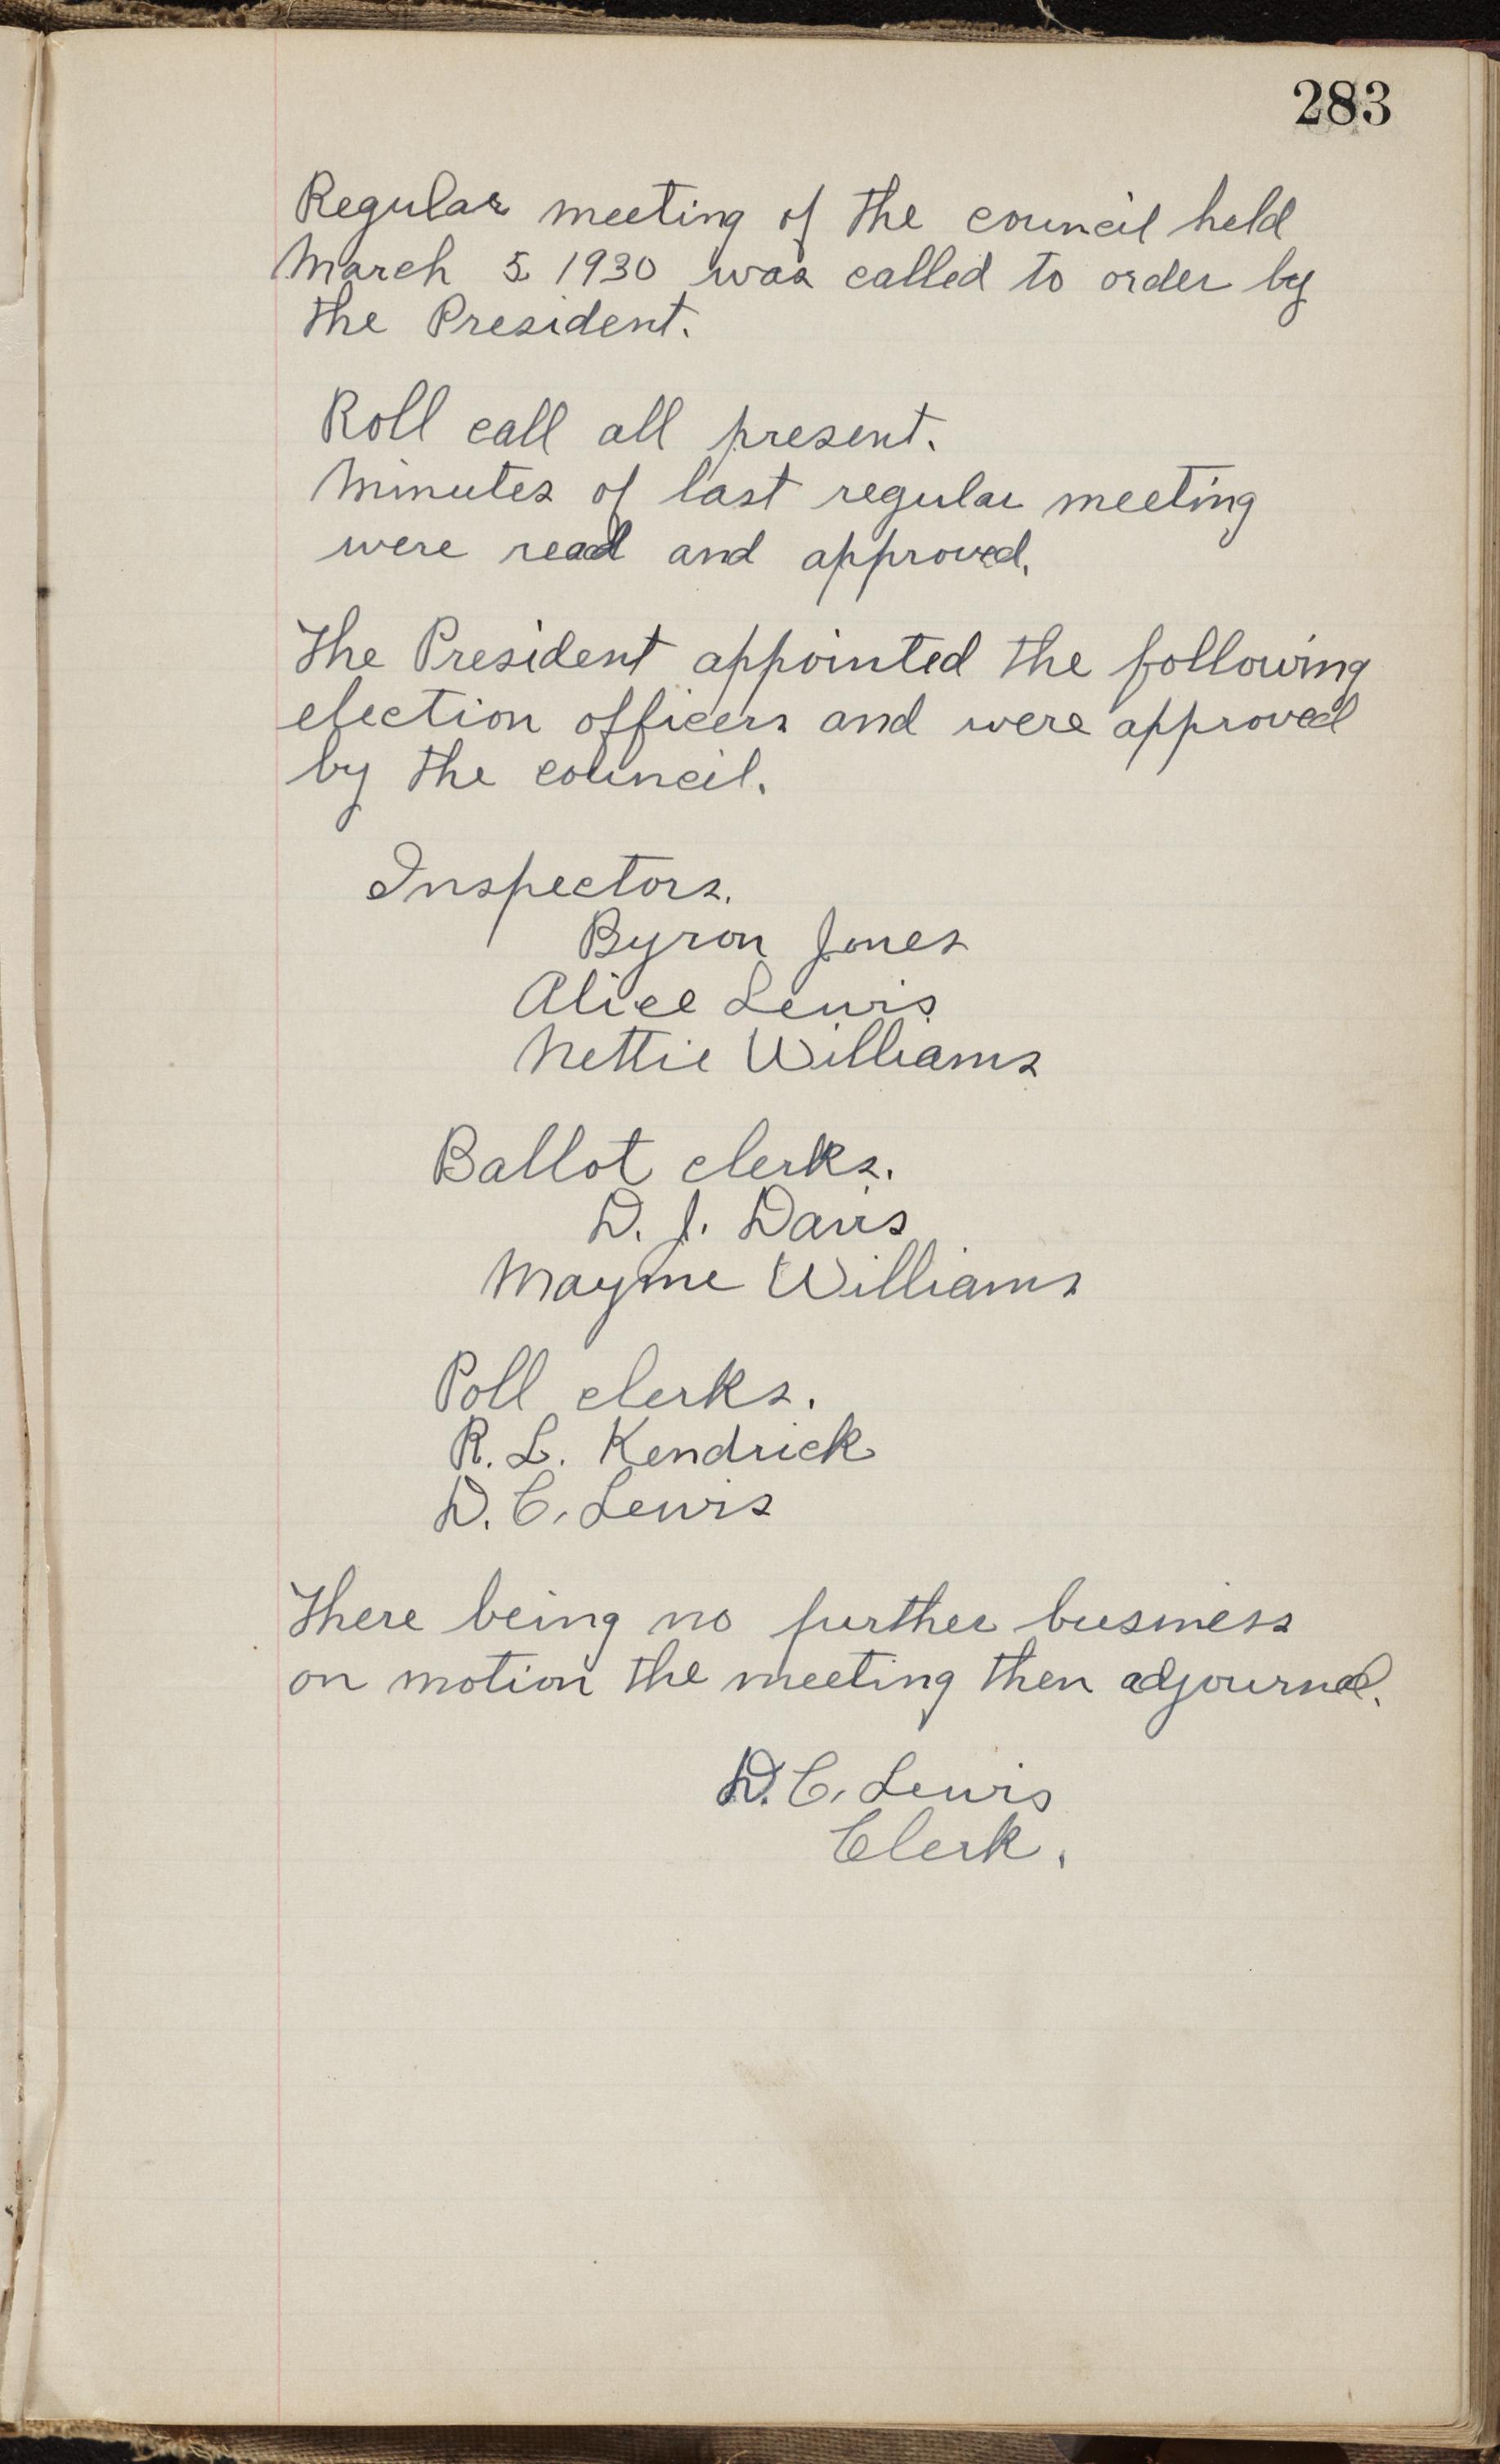 283
Regular meeting of the council held
March 5 1930 was called to order by
the President.
Roll call all present.
Minutes of last regular meeting
were read and approved.
The President appointed the following
election officers and were approved
by the council.
Inspectors.
Byron Jones
Alice Lewis
Nettie Williams
Ballot clerks.
D. J. Davis
Mayme Williams
Poll clerks.
R. L. Kendrick
D. C. Lewis
There being no further business
on motion the meeting then adjourned.
D. C. Lewis
Clerk.